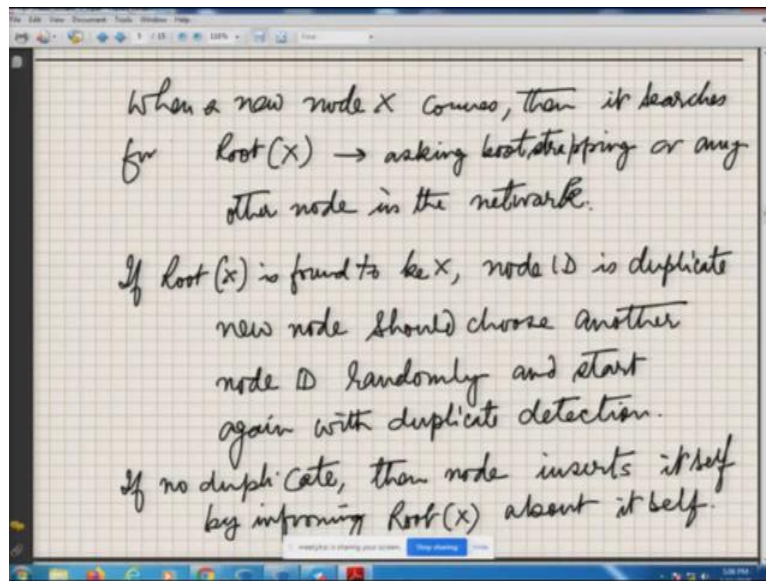 File Edit View Document Tools Window Help
When a new node X comes, then it searches
for Root(X) → asking bootstrapping or any
other node in the network.
If Root(X) is found to be X, node ID is duplicate
new node should choose another
node ID randomly and start
again with duplicate detection.
If no duplicate, then node inserts itself
by informing Root(X) about itself.
is sharing your screen. Stop sharing Hide
5:06 PM